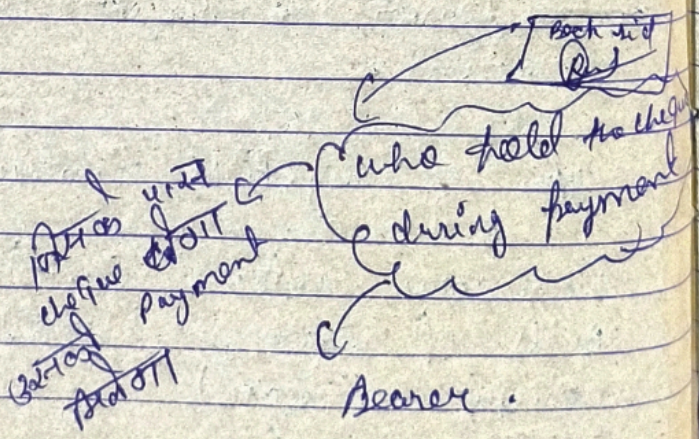 Back sid
who hold the cheque
during payment
जिसके पास
cheque होगा
payment
उसको
मिलेगा
Bearer.